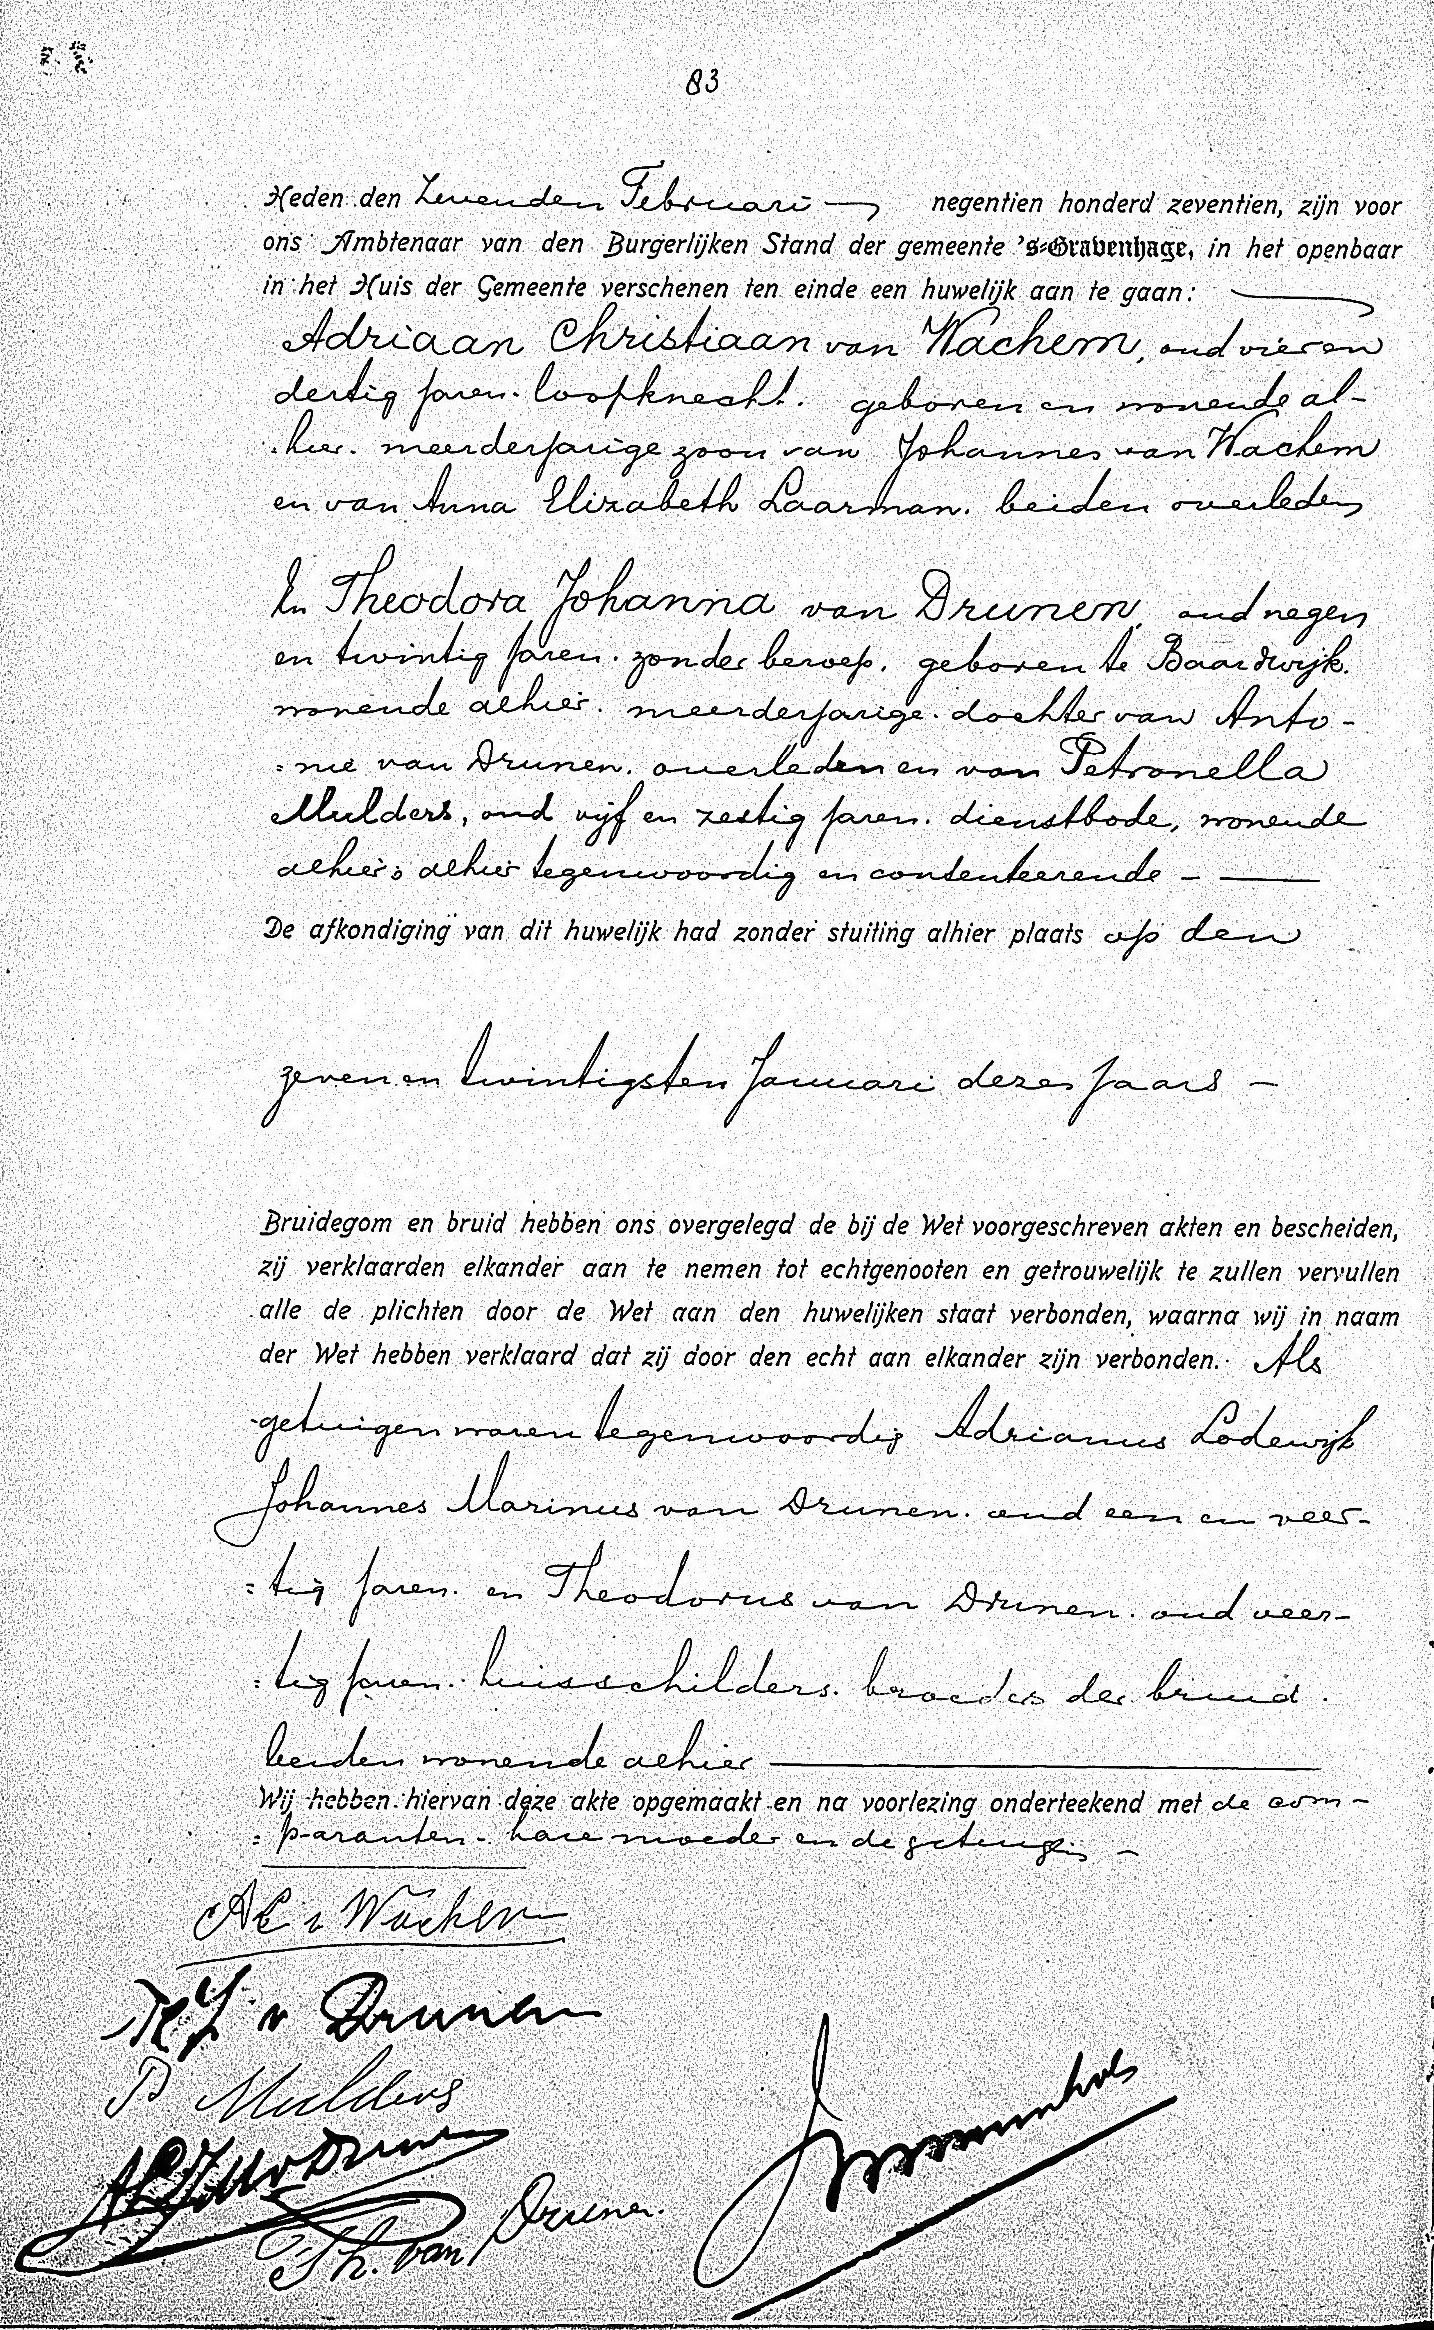 83
Heden den Zevenden Februari negentien honderd zeventien, zijn voor
ons Ambtenaar van den Burgerlijken Stand der gemeente 's-Gravenhage, in het openbaar
in het Huis der Gemeente verschenen ten einde een huwelijk aan te gaan:
Adriaan Christiaan van Wachem, oud vier en
dertig jaren. loopknecht. geboren en wonende al-
:hier. meerderjarige zoon van Johannes van Wachem
en van Anna Elizabeth Laarman. beiden overleden
En Theodora Johanna van Drunen, oud negen
en twintig jaren. zonder beroep. geboren te Baardwijk.
wonende alhier. meerderjarige dochter van Anto-
:nie van Drunen. overleden en van Petronella
Mulders, oud vijf en zestig jaren. dienstbode, wonende
alhier; alhier tegenwoordig en consenteerende –
De afkondiging van dit huwelijk had zonder stuiting alhier plaats op den
zeven en twintigsten Januari dezes jaars –
Bruidegom en bruid hebben ons overgelegd de bij de Wet voorgeschreven akten en bescheiden,
zij verklaarden elkander aan te nemen tot echtgenooten en getrouwelijk te zullen vervullen
alle de plichten door de Wet aan den huwelijken staat verbonden, waarna wij in naam
der Wet hebben verklaard dat zij door den echt aan elkander zijn verbonden. Als
getuigen waren tegenwoordig Adrianus Lodewijk
Johannes Marinus van Drunen. oud een en veer-
:tig jaren. en Theodorus van Drunen. oud veer-
:tig jaren. huisschilders. broeders der bruid.
beiden wonende alhier
Wij hebben hiervan deze akte opgemaakt en na voorlezing onderteekend met de com-
:paranten. hare moeder en de getuigen –
AC v Wachem
Th J v Drunen
P Mulders
ALJM v Drunen
Th. van Drunen.